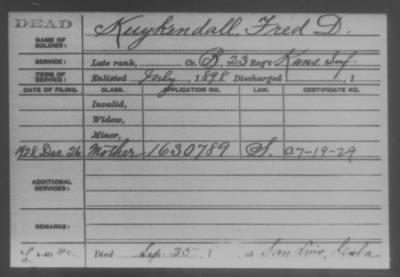 DEAD
NAME OF SOLDIER: Kuykendall, Fred D.
SERVICE: Late rank, Co. B, 23 Reg't Kans. Inf.
TERM OF SERVICE: Enlisted July, 1898 Discharged , 1
DATE OF FILING. CLASS. APPLICATION NO. LAW. CERTIFICATE NO.
Invalid,
Widow,
Minor,
1928 Dec. 26 Mother 1630789 S. a-7-19-29
ADDITIONAL SERVICES:
REMARKS:
Died Sep. 25, 1 at San Luis, Cuba